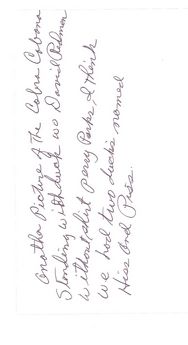 Another Picture of the Cobra Cabana
Standing with duck wo David Redmon
without shirt perry Parks, I think
we had two ducks named
Hiss and Piss.